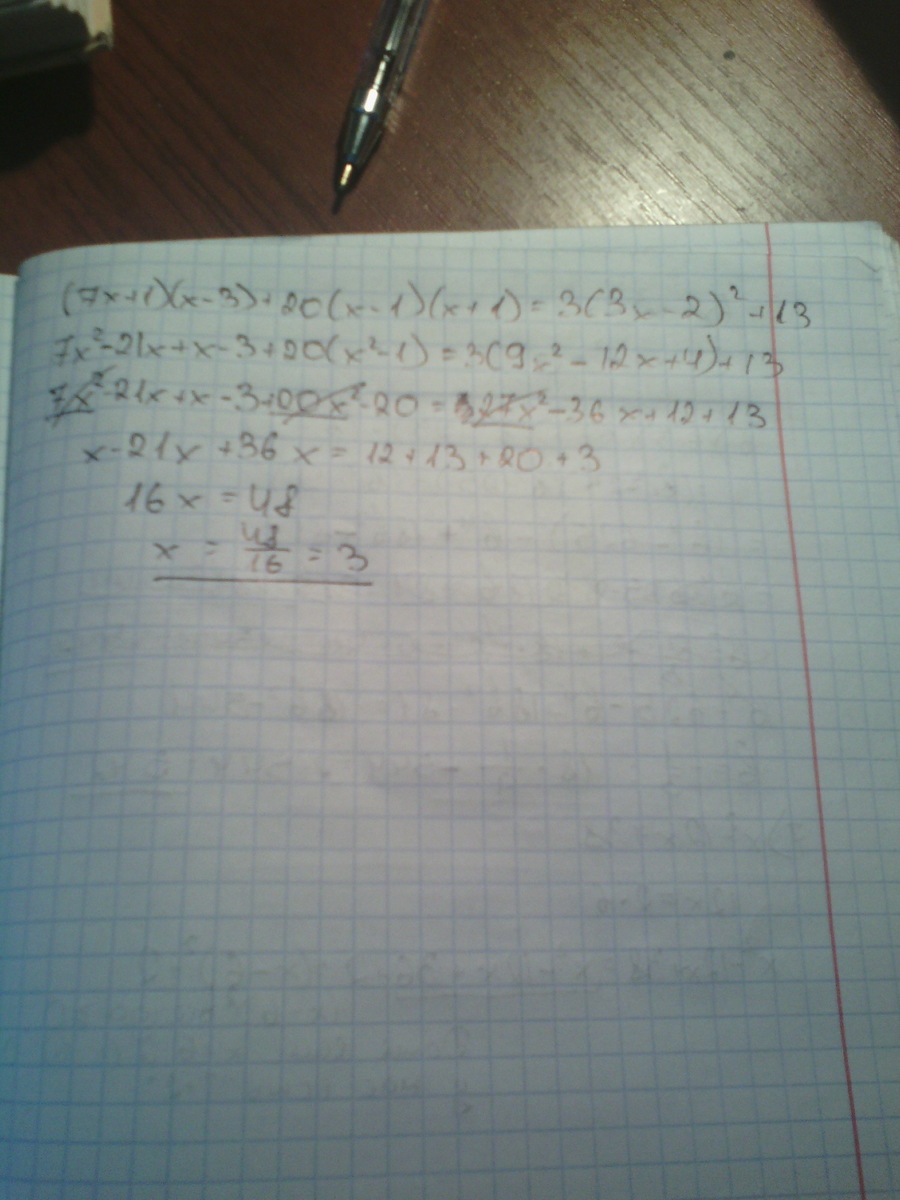 (7x+1)(x-3)+20(x-1)(x+1)=3(3x-2)²+13
7x²-21x+x-3+20(x²-1)=3(9x²-12x+4)+13
7x²-21x+x-3+20x²-20=27x²-36x+12+13
x-21x+36x=12+13+20+3
16x=48
x=48/16=3